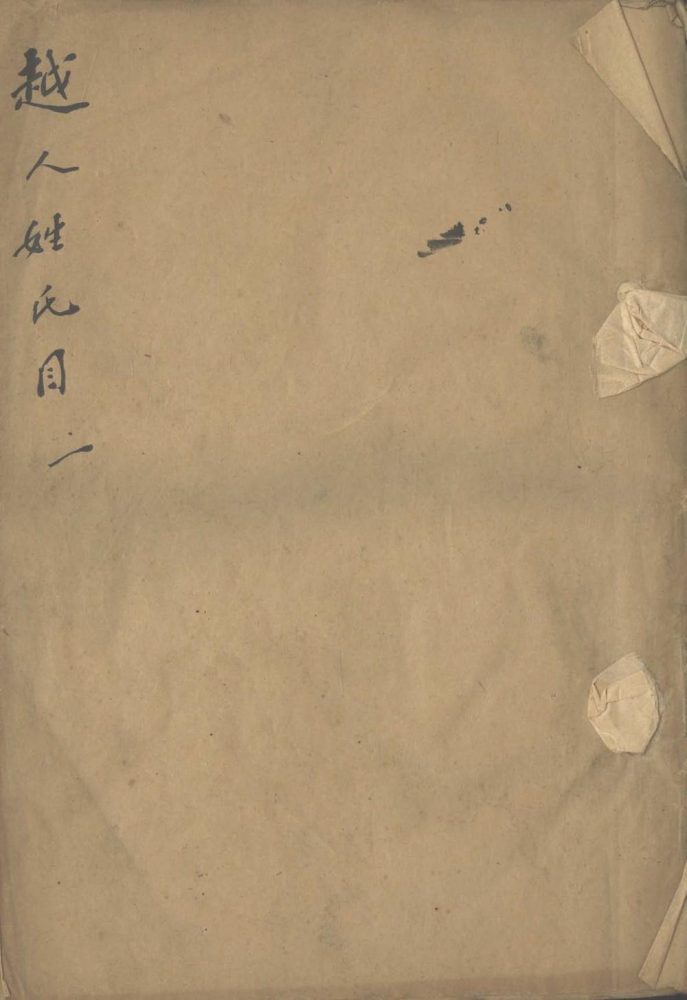 越人姓氏目二